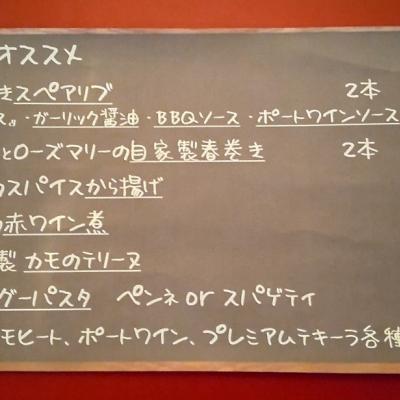 オススメ
きスペアリブ 2本
ス』・ガーリック醤油・BBQソース・ポートワインソース
とローズマリーの自家製春巻き 2本
スパイスから揚げ
赤ワイン煮
製 カモのテリーヌ
グーパスタ ペンネor スパゲティ
モヒート、ポートワイン、プレミアムテキーラ各種